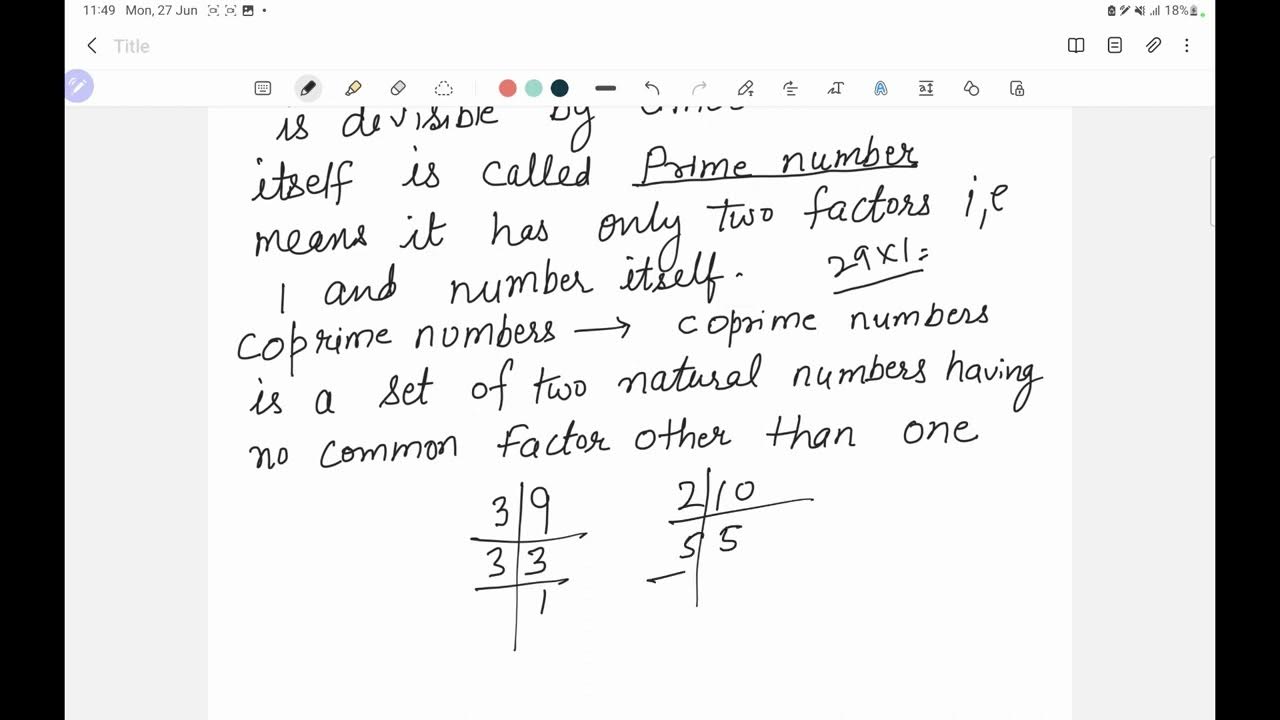 11:49 Mon, 27 Jun
18%
Title
is devisible by
itself is called Prime number
means it has only two factors i,e
1 and number itself. 29×1=
coprime numbers → coprime numbers
is a set of two natural numbers having
no common factor other than one
3 9 2 10
3 3 5 5
1